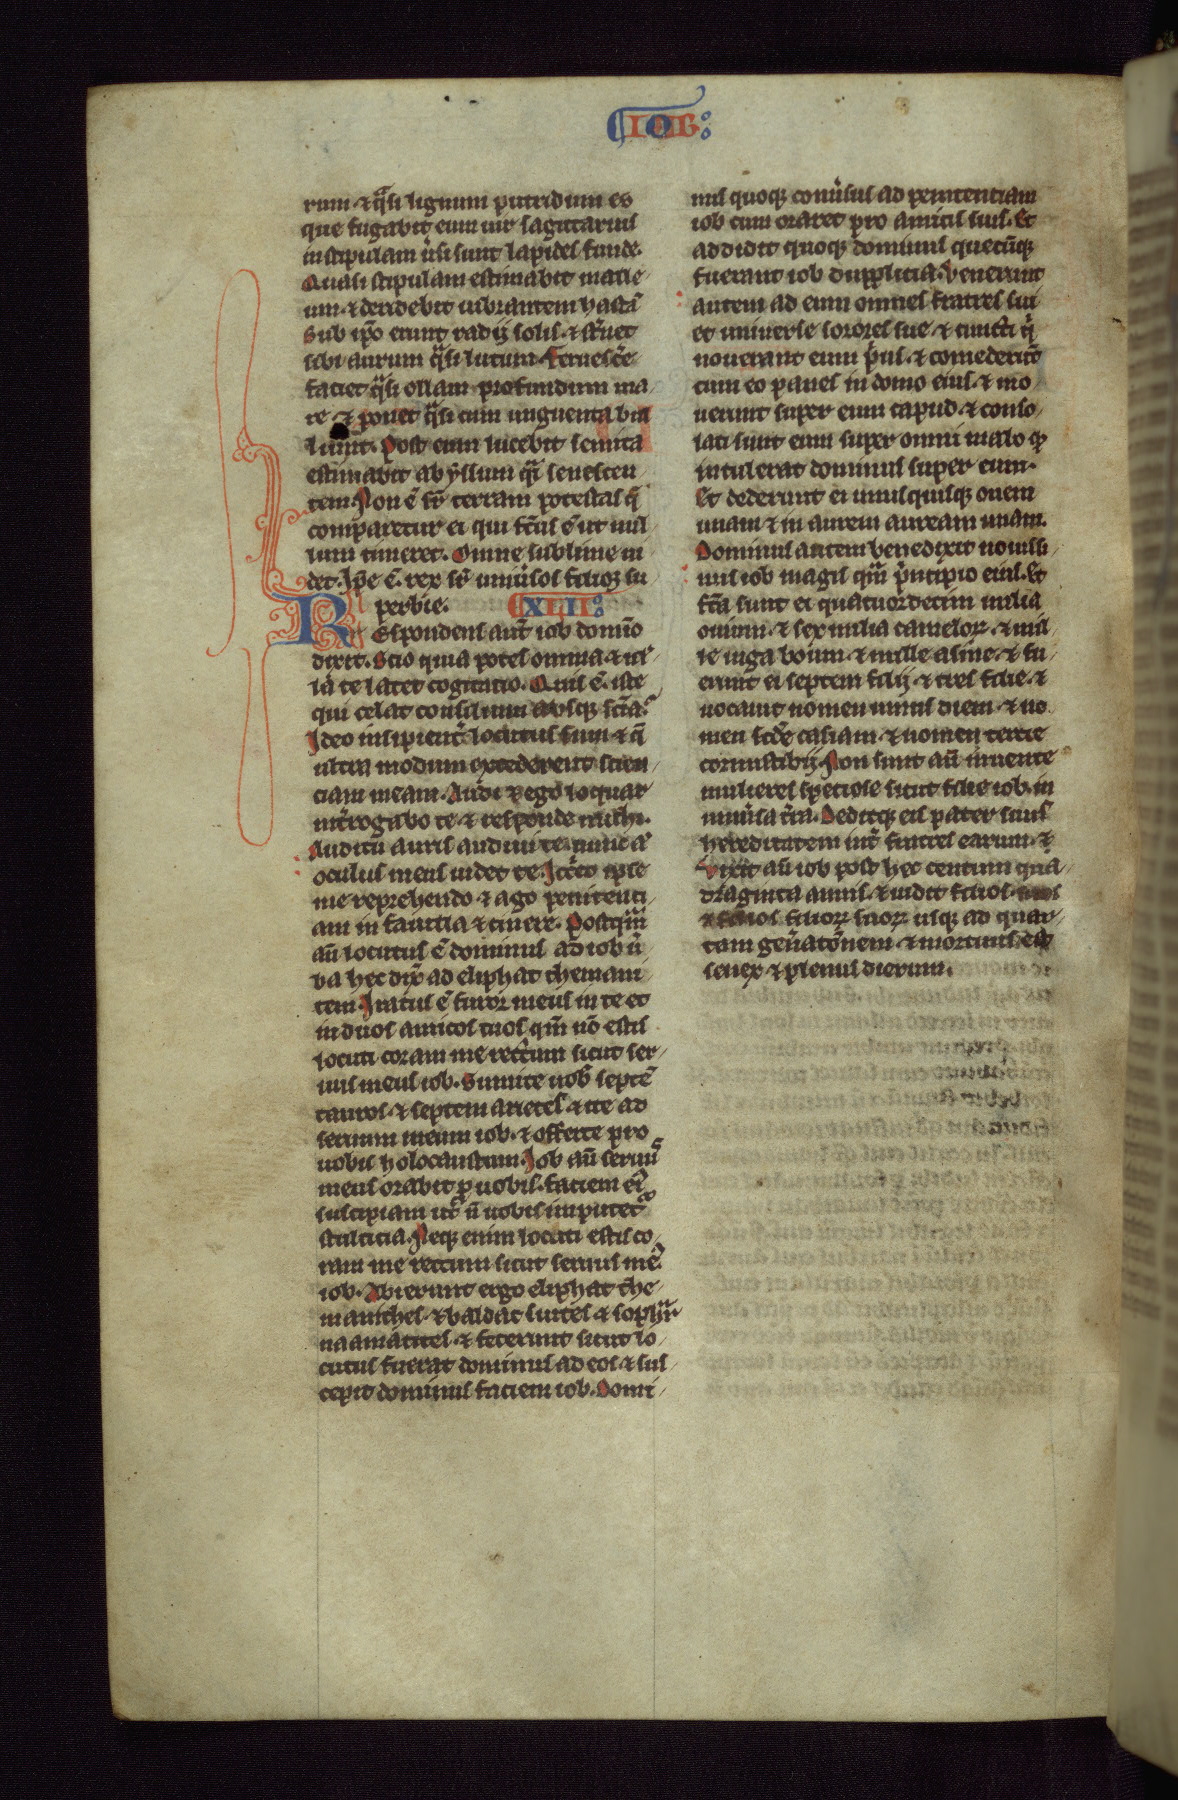 IOB
rum ⁊ qͣsi lignum putridum es
que fugabit eum uir sagittarius
in stipulam uͥsi sunt lapides funde.
Quasi stipulam estimabit malle
um ⁊ deridebit uibrantem hastā
Sub ipō erunt radij solis ⁊ st̾net
sibi aurum qͣsi lutum. Feruesc̾e
faciet qͣsi ollam profundum ma
re ⁊ ponet qͣsi cum unguenta bul
liunt. Post eum lucebit semita
estimabit abyssum qͣsi senescen
tem. Non ē suꝑ terram potestas q̄
comparetur ei qui fc̄us ē ut nul
lum timeret. Omne sublime ui
det. Ipse ē rex suꝑ uniu̾sos filios su
perbie. XLII
Respondens aut̄ iob domīo
dixit. Scio quia potes omnia ⁊ nͥl
la te latet cogitatio. Quis ē iste
qui celat consilium absqꝫ sc̄ia.
Ideo insipient̾ locutus sum ⁊ q̄
ultra modum excederent scien
ciam meam. Audi ⁊ ego loquar
int̾rogabo te ⁊ responde michi.
Auditu auris audiui te nunc aͧ
oculus meus uidet te. Idc̾co ipse
me reprehendo ⁊ ago penitenti
am in fauilla ⁊ cinere. Postqͣm
aū locutus ē dominus ad iob u̾
ba hec dix̾ ad eliphat themani
tem. Iratus ē furor meus in te et
in duos amicos tuos qm̄ nō estis
locuti coram me rectum sicut ser
uus meus iob. Sumite uob̾ septē
tauros ⁊ septem arietes ⁊ ite ad
seruum meum iob. ⁊ offerte pro
uobis holocaustum. Iob aū seruus
meus orabit ꝓ uobis. faciem ei᷒
suscipiam ut n̄ uobis imputet᷑
stulticia. Neqꝫ enim locuti estis co
ram me rectum sicut seruus me᷒
iob. Abierunt ergo eliphat the
manithes ⁊ baldat suites ⁊ sophar
naamatites ⁊ fecerunt sicut lo
cutus fuerat dominus ad eos ⁊ sus
cepit dominus faciem iob. Domi
nus quoqꝫ conu̾sus ad penitentiam
iob cum oraret pro amicis suis. Et
addidit quoqꝫ dominus quecūqꝫ
fuerant iob dupplicia. Venerunt
autem ad eum omnes fratres sui
et uniuerse sorores sue ⁊ cuncti qͥ
nouerant eum pͥus. ⁊ comederūt
cum eo panes in domo eius. ⁊ mo
uerunt super eum capud. ⁊ conso
lati sunt eum super omni malo qͦd
intulerat dominus super eum.
Et dederunt ei unusquisqꝫ ouem
unam ⁊ in aurem auream unam.
Dominus autem benedixit nouissi
mis iob magis qͣm pͥncipio eius. Et
fc̄a sunt ei quatuordecim milia
ouium. ⁊ sex milia cameloꝝ. ⁊ mil
le iuga boum. ⁊ mille asine. ⁊ fu
erunt ei septem filij ⁊ tres filie. ⁊
uocauit nomen unius diem. ⁊ no
men scd̄e casiam. ⁊ nomen tercie
cornustibij. Non sunt aū inuente
mulieres speciose sicut filie iob. in
uniu̾sa t̾ra. Deditqꝫ eis pater suus
hereditatem int̾ fratres earum. ⁊
Vixit aū iob post hec centum qua
draginta annis. ⁊ uidit filios suos
⁊ filios filioꝝ suoꝝ usqꝫ ad quar
tam gen̾atōnem. ⁊ mortuus est
senex ⁊ plenus dierum.